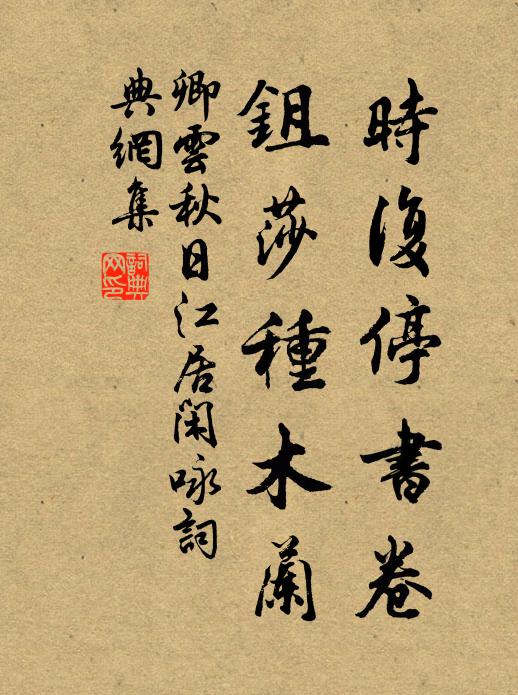 時復停書卷
鉏莎種木蘭
卿雲秋日江居閑咏詞
典網集
詞典網印